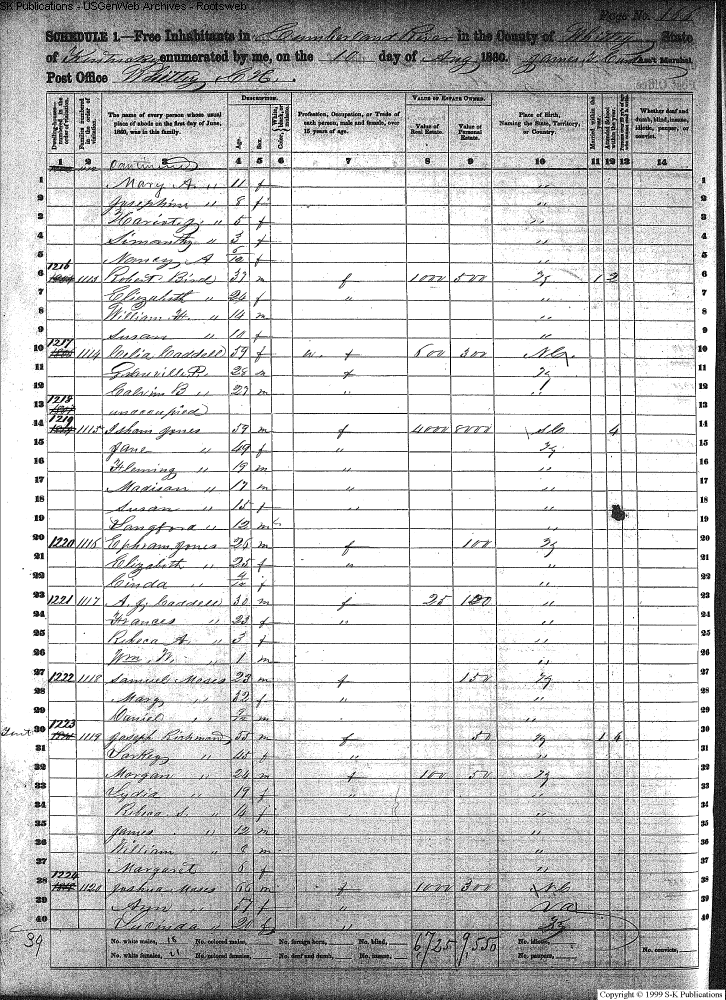 SK Publications - USGenWeb Archives - Rootsweb
Page No. 116
SCHEDULE 1.—Free Inhabitants in Cumberland River in the County of Whitley State
of Kentucky enumerated by me, on the 10 day of Aug 1860. James Ass't Marshal
Post Office Whitley C. H.
Dwelling-houses—numbered in the order of visitation.
Families numbered in the order of visitation.
The name of every person whose usual place of abode on the first day of June, 1860, was in this family.
DESCRIPTION.
Age.
Sex.
Color, White, black, or mulatto.
Profession, Occupation, or Trade of each person, male and female, over 15 years of age.
VALUE OF ESTATE OWNED.
Value of Real Estate.
Value of Personal Estate.
Place of Birth, Naming the State, Territory, or Country.
Married within the year.
Attended School within the year.
Whether deaf and dumb, blind, insane, idiotic, pauper, or convict.
1 2 3 4 5 6 7 8 9 10 11 12 13 14
Continued
1 Mary A. " 11 f " 1
2 Josephine " 8 f " 2
3 " 5 f " 3
4 " 3 f " 4
5 Nancy A 5/12 f " 5
6 1216 1113 Robert Bird 37 m f 1000 500 Ky 1 2 6
7 Elizabeth " 24 f " " 7
8 William H. " 14 m " 8
9 Susan " 10 f " 9
10 1217 1114 Celia Caddell 59 f f 600 300 NC 10
11 Grenville R. " 28 m f Ky 11
12 Calvin B " 27 m " " 12
13 1218 unoccupied 13
14 1219 1115 Isham Jones 59 m f 4000 8000 SC 4 14
15 Jane " 49 f " Ky 15
16 Fleming " 19 m " " 16
17 Madison " 17 m " " 17
18 Susan " 15 f " " 18
19 Langford " 12 m " 19
20 1220 1116 Ephram Jones 26 m f 100 Ky 20
21 Elizabeth " 25 f " " 21
22 Cinda " f " 22
23 1221 1117 A. J. Caddell 30 m f 25 120 " 23
24 Frances " 23 f " " 24
25 Rebeca A. " 3 f " 25
26 Wm. W. " 1 m " 26
27 1222 1118 Samuel Moses 23 m f 150 Ky 27
28 Mary " 32 f " " 28
29 Daniel " m " 29
30 1223
31 1119 Joseph Richmond 55 m f 50 Ky 1 4
32 " 45 f " "
Morgan " 24 m f 100 50 Ky
Lydia " 19 f " "
Rebeca S. " 14 f "
James " 12 m "
William " 8 m "
Margaret " 6 f "
38 1224 1120 Joshua Moses 66 m f 1000 300 NC 38
39 Ann " 57 f " Va 39
40 Lucinda " 20 f " Ky 40
39
No. white males, 18 No. colored males, No. foreign born, No. blind, 6725 9,550 No. idiotic, No. convicts,
No. white females, 21 No. colored females, No. deaf and dumb, No. insane, No. paupers,
Copyright © 1999 S-K Publications